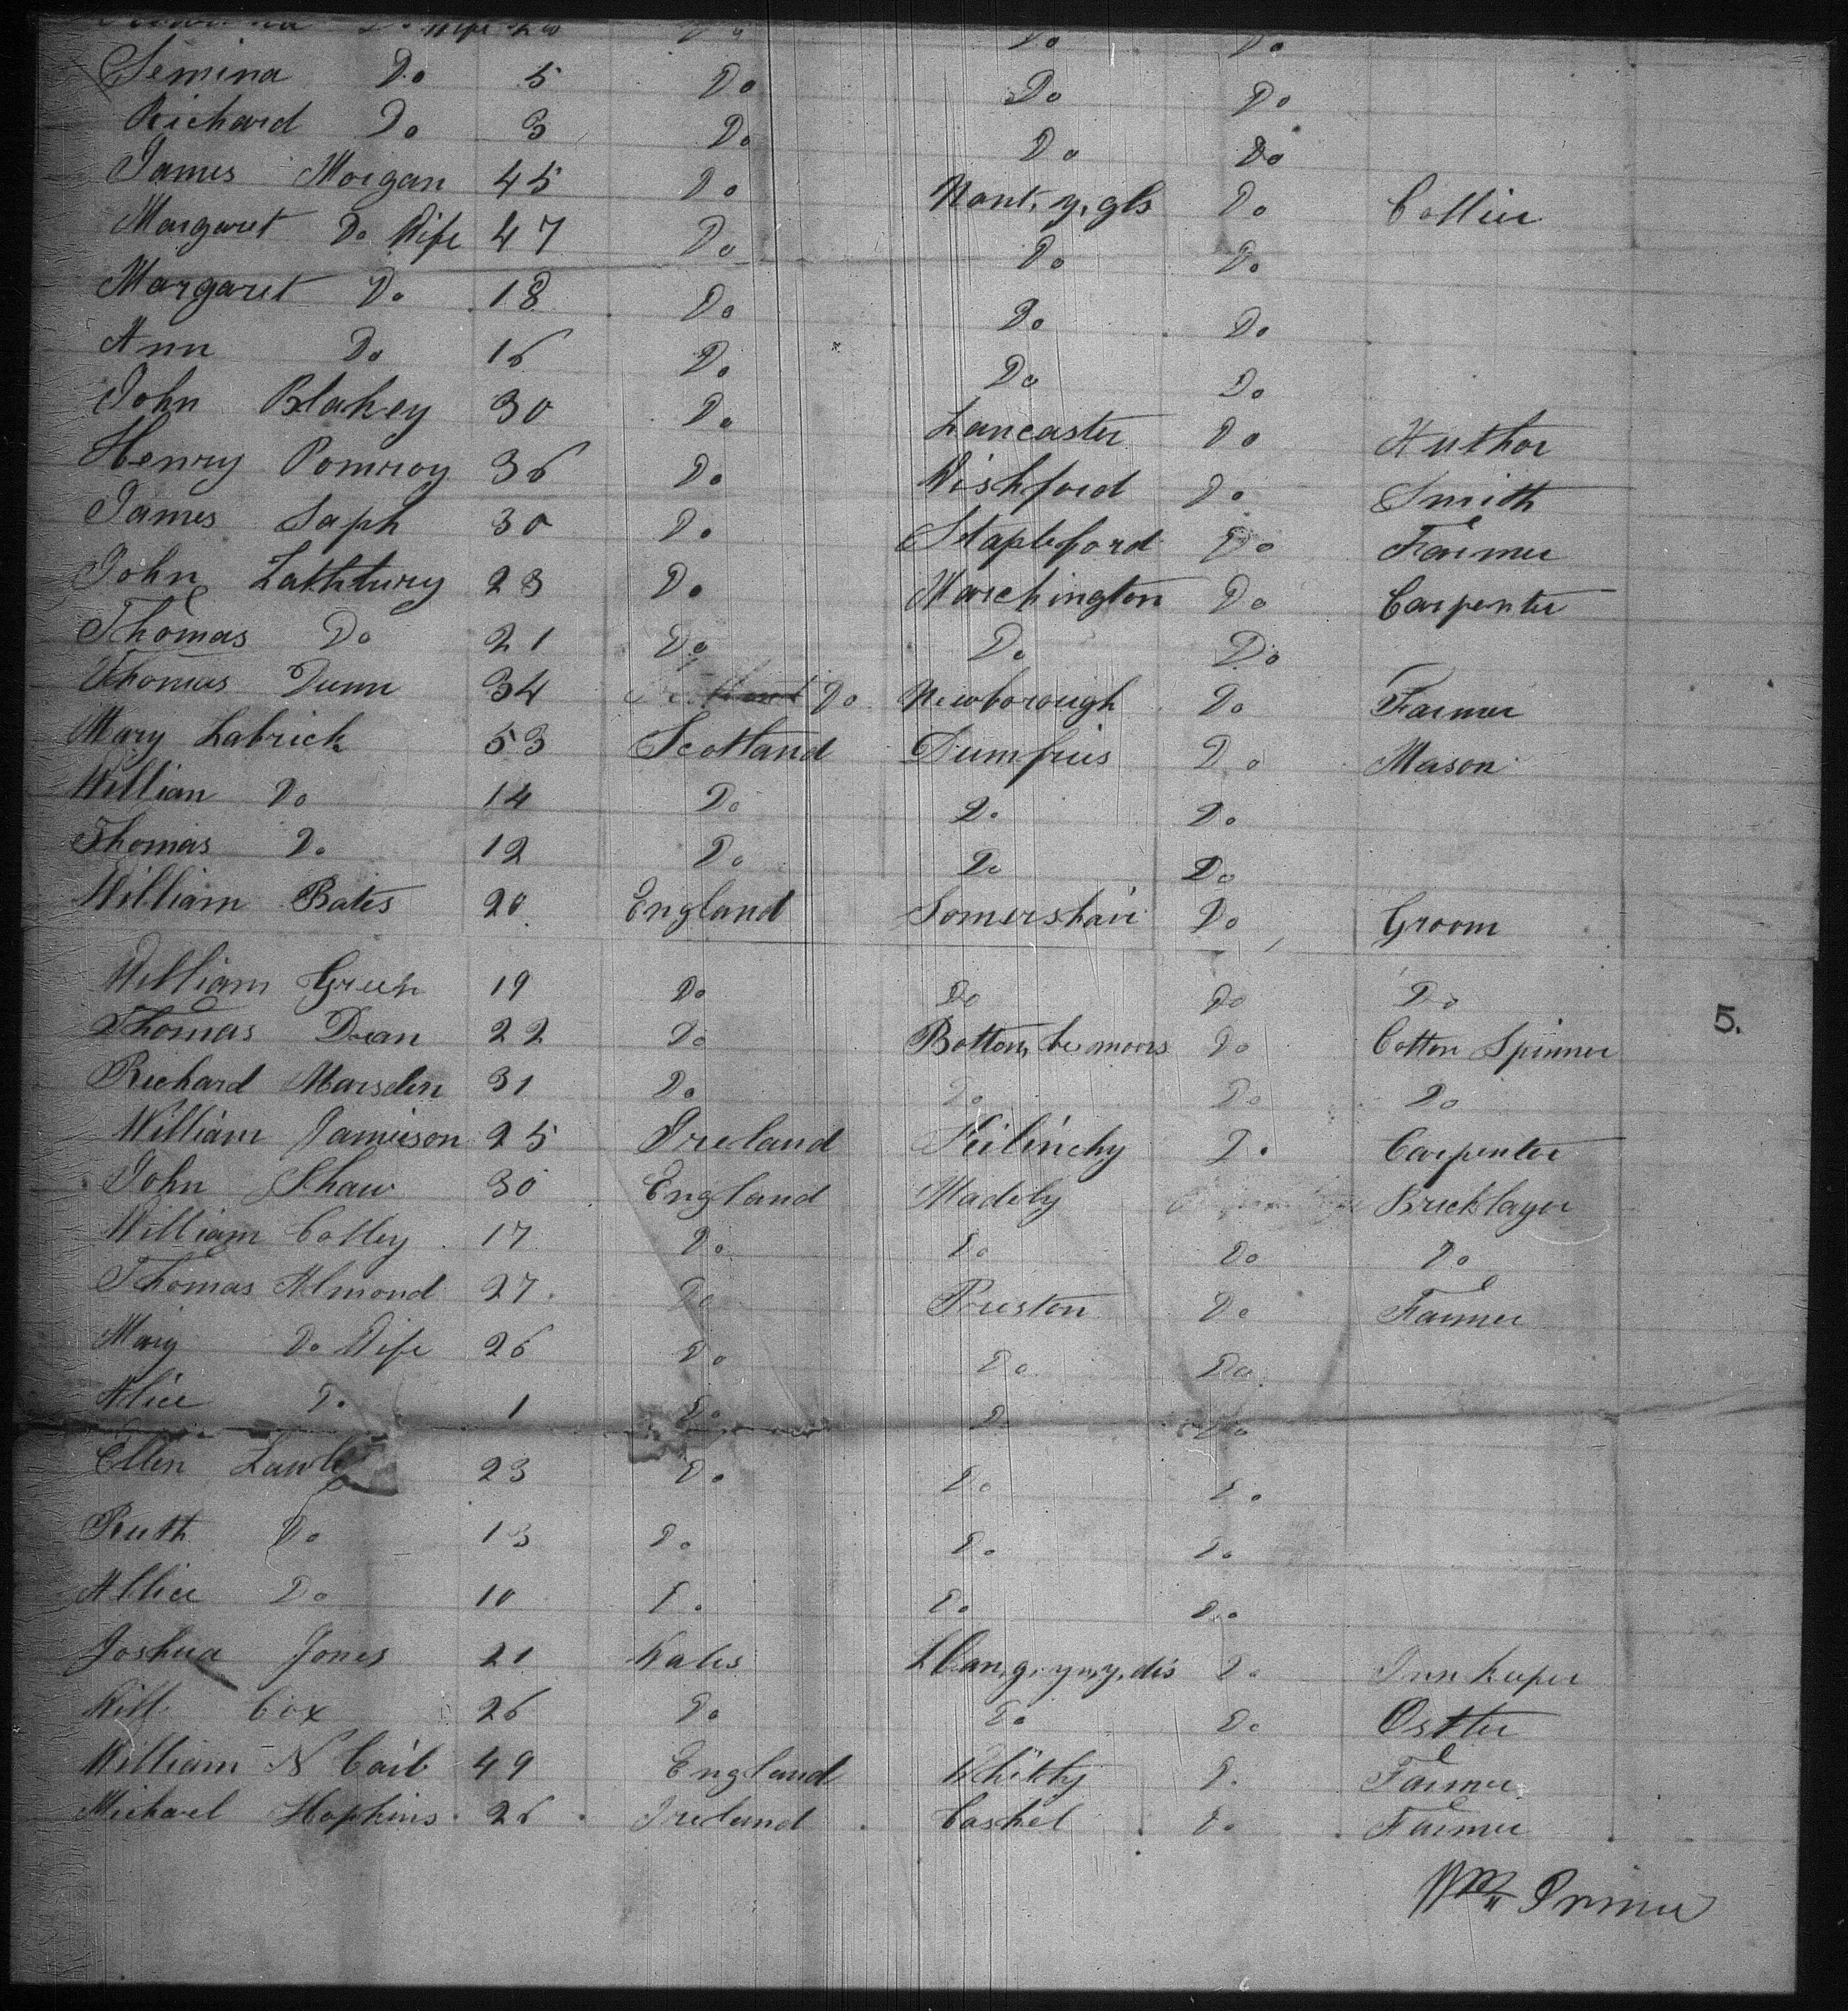 Do Wife Do Do Do
Semina Do 5 Do Do Do
Richard Do 3 Do Do Do
James Morgan 45 Do Nant, y, gls Do Collier
Margaret Do Wife 47 Do Do Do
Margaret Do 18 Do Do Do
Ann Do 16 Do Do Do
John Blakey 30 Do Lancaster Do Author
Henry Pomroy 36 Do Wishford Do Smith
James Saph 30 Do Stapleford Do Farmer
John Lathbury 23 Do Marchington Do Carpenter
Thomas Do 21 Do Do Do
Thomas Dunn 34 Do Newborough Do Farmer
Mary Labrick 53 Scotland Dumfries Do Mason
William Do 14 Do Do Do
Thomas Do 12 Do Do Do
William Bates 20 England Somershair Do Groom
William Green 19 Do Do Do Do
Thomas Dean 22 Do Bolton, le moors Do Cotton Spinner
5.
Richard Marsden 31 Do Do Do Do
William Jamieson 25 Ireland Keilinchy Do Carpenter
John Shaw 30 England Madely Bricklayer
William Colley 17 Do Do Do Do
Thomas Almond 27 Do Preston Do Farmer
Mary Do Wife 26 Do Do Do
Alice Do 1 Do Do Do
Ellen 23 Do Do Do
Ruth Do 13 Do Do Do
Allice Do 10 Do Do Do
Joshua Jones 21 Wales Llan, g, yn, y, dis Do Inn keeper
Will Cox 26 Do Do Do Ostler
William N Cail 49 England Whitby Do Farmer
Michael Hopkins 26 Ireland Cashel Do Farmer
Wm Prime